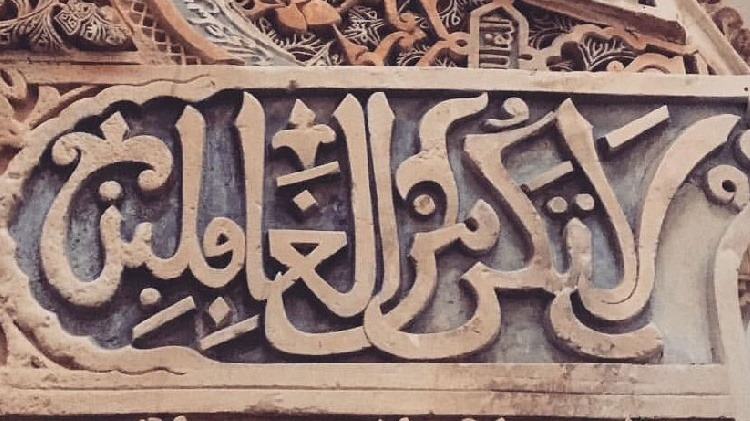 لا تكُن من الغَافلين